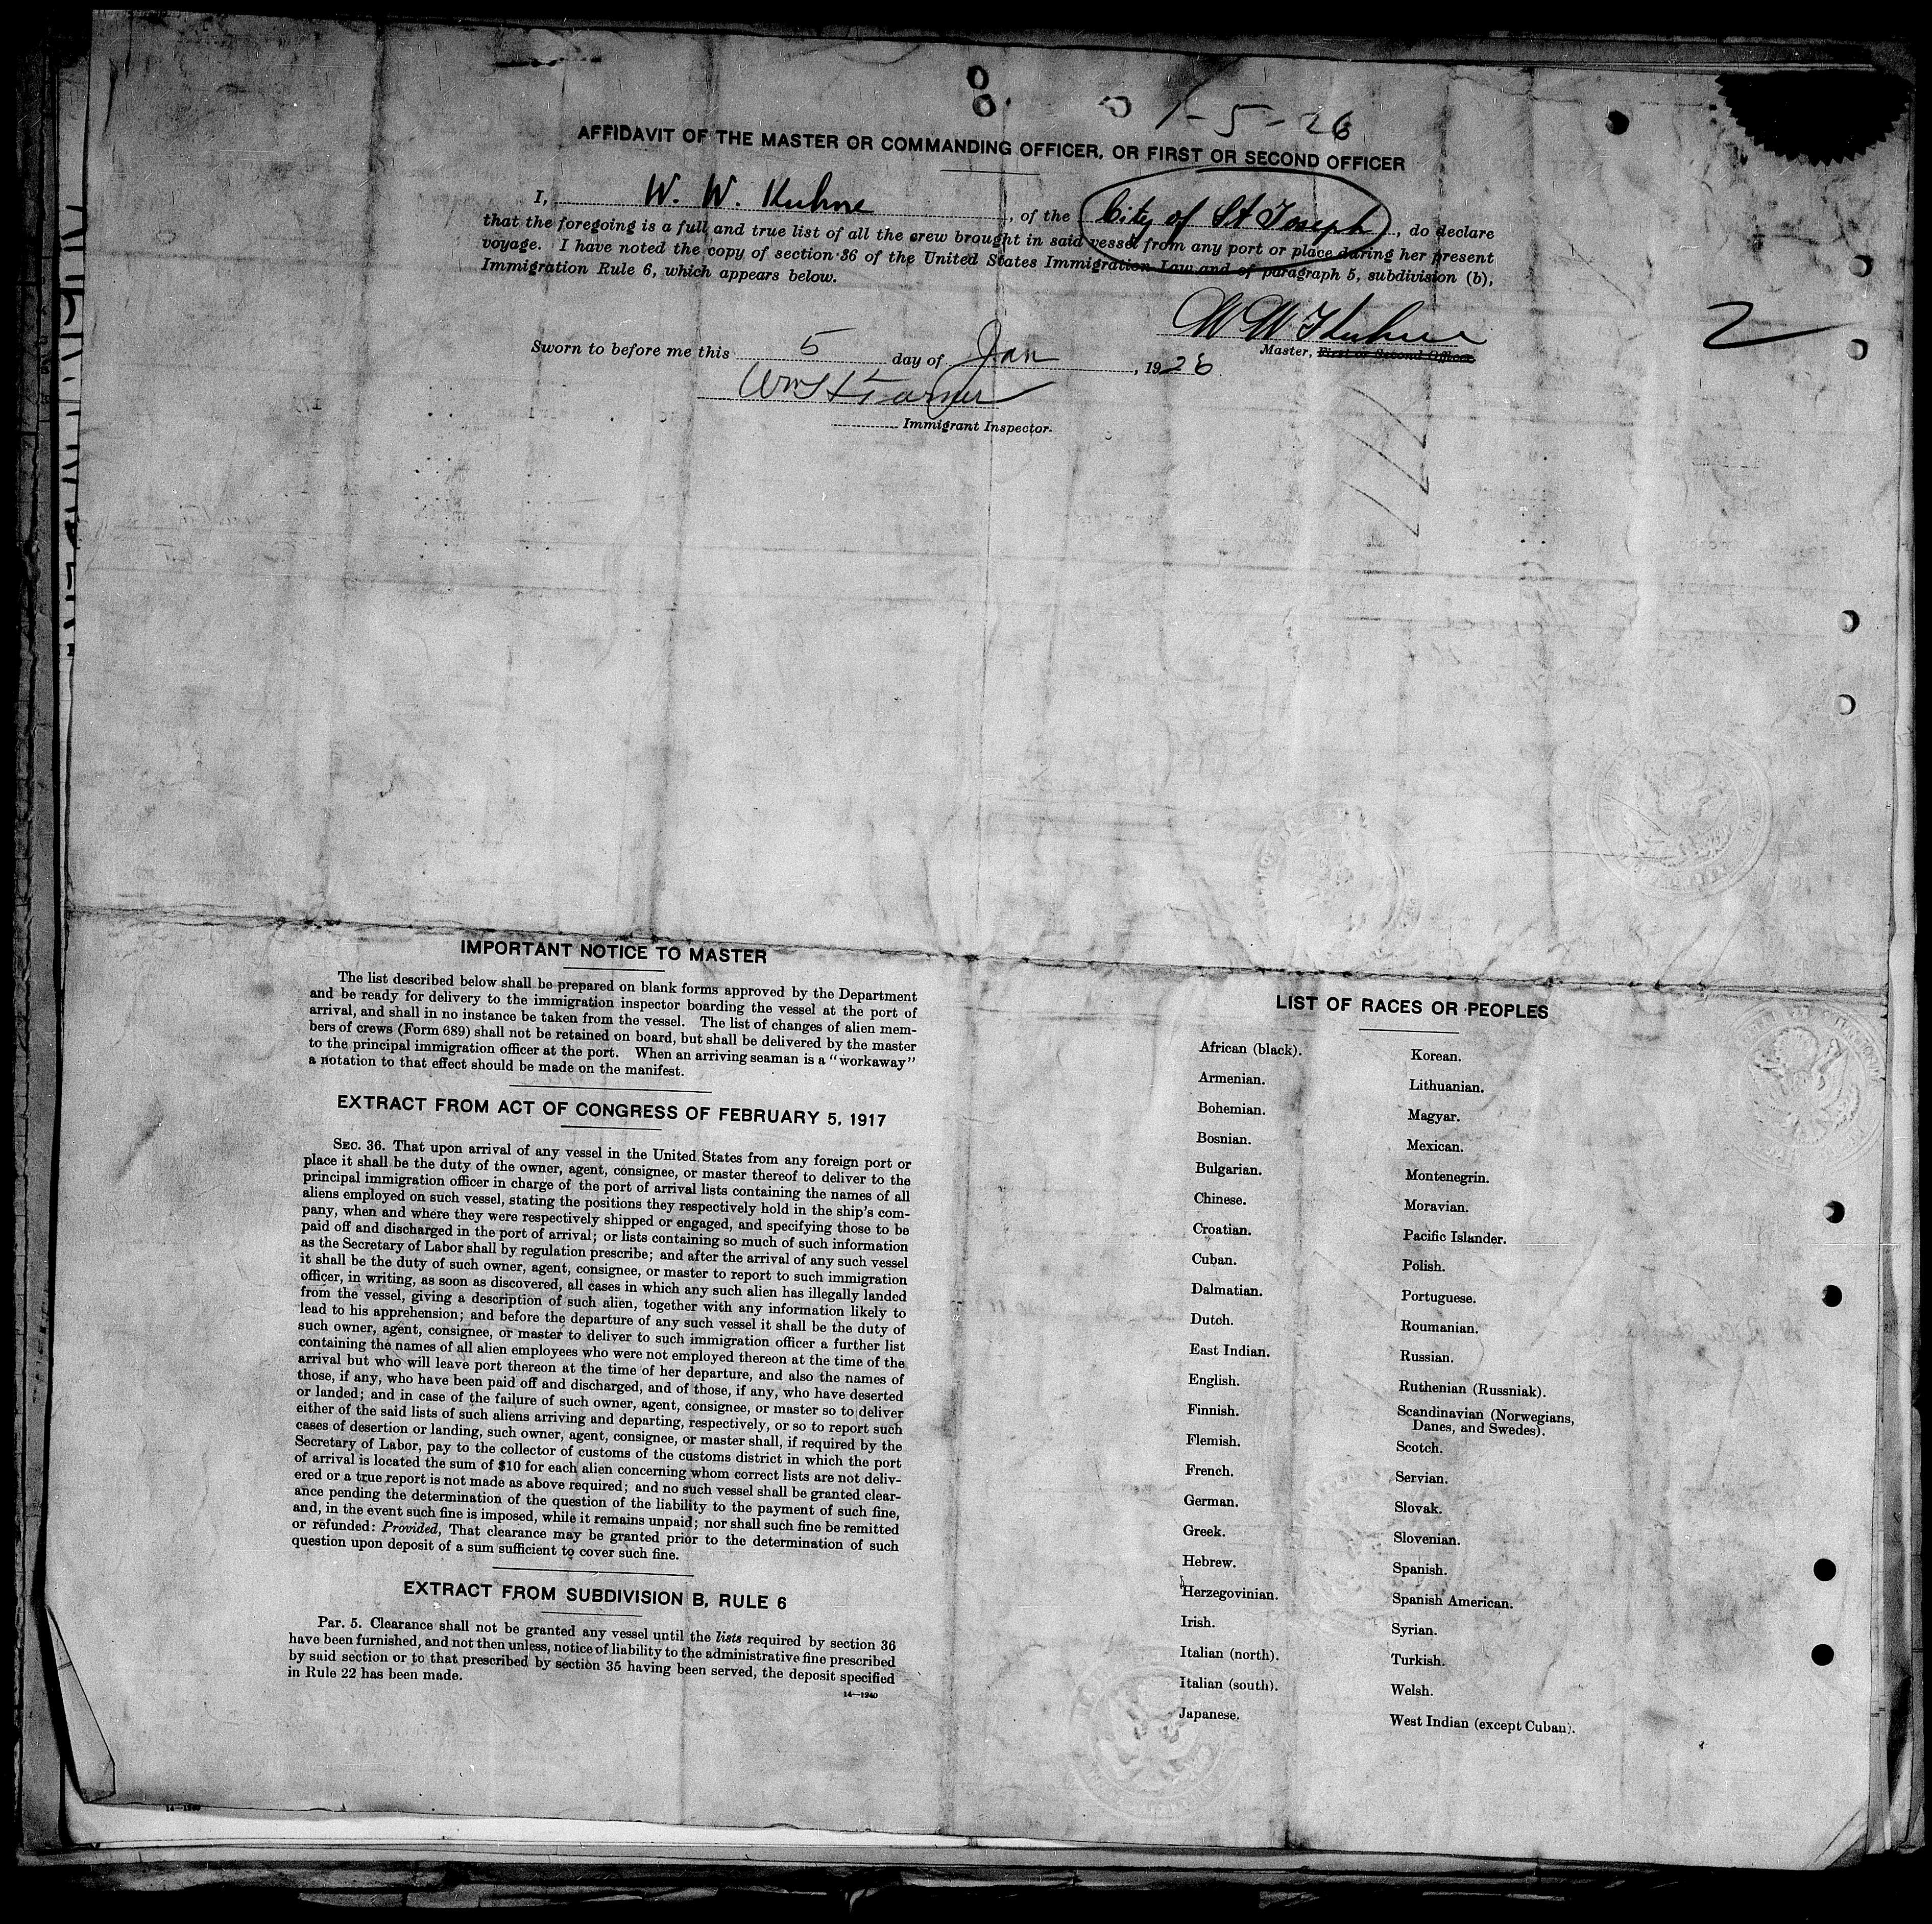 1-5-26
AFFIDAVIT OF THE MASTER OR COMMANDING OFFICER, OR FIRST OR SECOND OFFICER
I, W. W. Kuhne, of the City of St Joseph, do declare
that the foregoing is a full and true list of all the crew brought in said vessel from any port or place during her present
voyage. I have noted the copy of section 36 of the United States Immigration Law and of paragraph 5, subdivision (b),
Immigration Rule 6, which appears below.
W W Kuhne
2
Master, First or Second Officer
Sworn to before me this 5 day of Jan, 1926
Immigrant Inspector.
IMPORTANT NOTICE TO MASTER
The list described below shall be prepared on blank forms approved by the Department
and be ready for delivery to the immigration inspector boarding the vessel at the port of
arrival, and shall in no instance be taken from the vessel. The list of changes of alien mem-
bers of crews (Form 689) shall not be retained on board, but shall be delivered by the master
to the principal immigration officer at the port. When an arriving seaman is a "workaway"
a notation to that effect should be made on the manifest.
EXTRACT FROM ACT OF CONGRESS OF FEBRUARY 5, 1917
SEC. 36. That upon arrival of any vessel in the United States from any foreign port or
place it shall be the duty of the owner, agent, consignee, or master thereof to deliver to the
principal immigration officer in charge of the port of arrival lists containing the names of all
aliens employed on such vessel, stating the positions they respectively hold in the ship's com-
pany, when and where they were respectively shipped or engaged, and specifying those to be
paid off and discharged in the port of arrival; or lists containing so much of such information
as the Secretary of Labor shall by regulation prescribe; and after the arrival of any such vessel
it shall be the duty of such owner, agent, consignee, or master to report to such immigration
officer, in writing, as soon as discovered, all cases in which any such alien has illegally landed
from the vessel, giving a description of such alien, together with any information likely to
lead to his apprehension; and before the departure of any such vessel it shall be the duty of
such owner, agent, consignee, or master to deliver to such immigration officer a further list
containing the names of all alien employees who were not employed thereon at the time of the
arrival but who will leave port thereon at the time of her departure, and also the names of
those, if any, who have been paid off and discharged, and of those, if any, who have deserted
or landed; and in case of the failure of such owner, agent, consignee, or master so to deliver
either of the said lists of such aliens arriving and departing, respectively, or so to report such
cases of desertion or landing, such owner, agent, consignee, or master shall, if required by the
Secretary of Labor, pay to the collector of customs of the customs district in which the port
of arrival is located the sum of $10 for each alien concerning whom correct lists are not deliv-
ered or a true report is not made as above required; and no such vessel shall be granted clear-
ance pending the determination of the question of the liability to the payment of such fine,
and, in the event such fine is imposed, while it remains unpaid; nor shall such fine be remitted
or refunded: Provided, That clearance may be granted prior to the determination of such
question upon deposit of a sum sufficient to cover such fine.
EXTRACT FROM SUBDIVISION B, RULE 6
Par. 5. Clearance shall not be granted any vessel until the lists required by section 36
have been furnished, and not then unless, notice of liability to the administrative fine prescribed
by said section or to that prescribed by section 35 having been served, the deposit specified
in Rule 22 has been made.
14—1240
LIST OF RACES OR PEOPLES
African (black).
Armenian.
Bohemian.
Bosnian.
Bulgarian.
Chinese.
Croatian.
Cuban.
Dalmatian.
Dutch.
East Indian.
English.
Finnish.
Flemish.
French.
German.
Greek.
Hebrew.
Herzegovinian.
Irish.
Italian (north).
Italian (south).
Japanese.
Korean.
Lithuanian.
Magyar.
Mexican.
Montenegrin.
Moravian.
Pacific Islander.
Polish.
Portuguese.
Roumanian.
Russian.
Ruthenian (Russniak).
Scandinavian (Norwegians,
Danes, and Swedes).
Scotch.
Servian.
Slovak.
Slovenian.
Spanish.
Spanish American.
Syrian.
Turkish.
Welsh.
West Indian (except Cuban).
14—1240